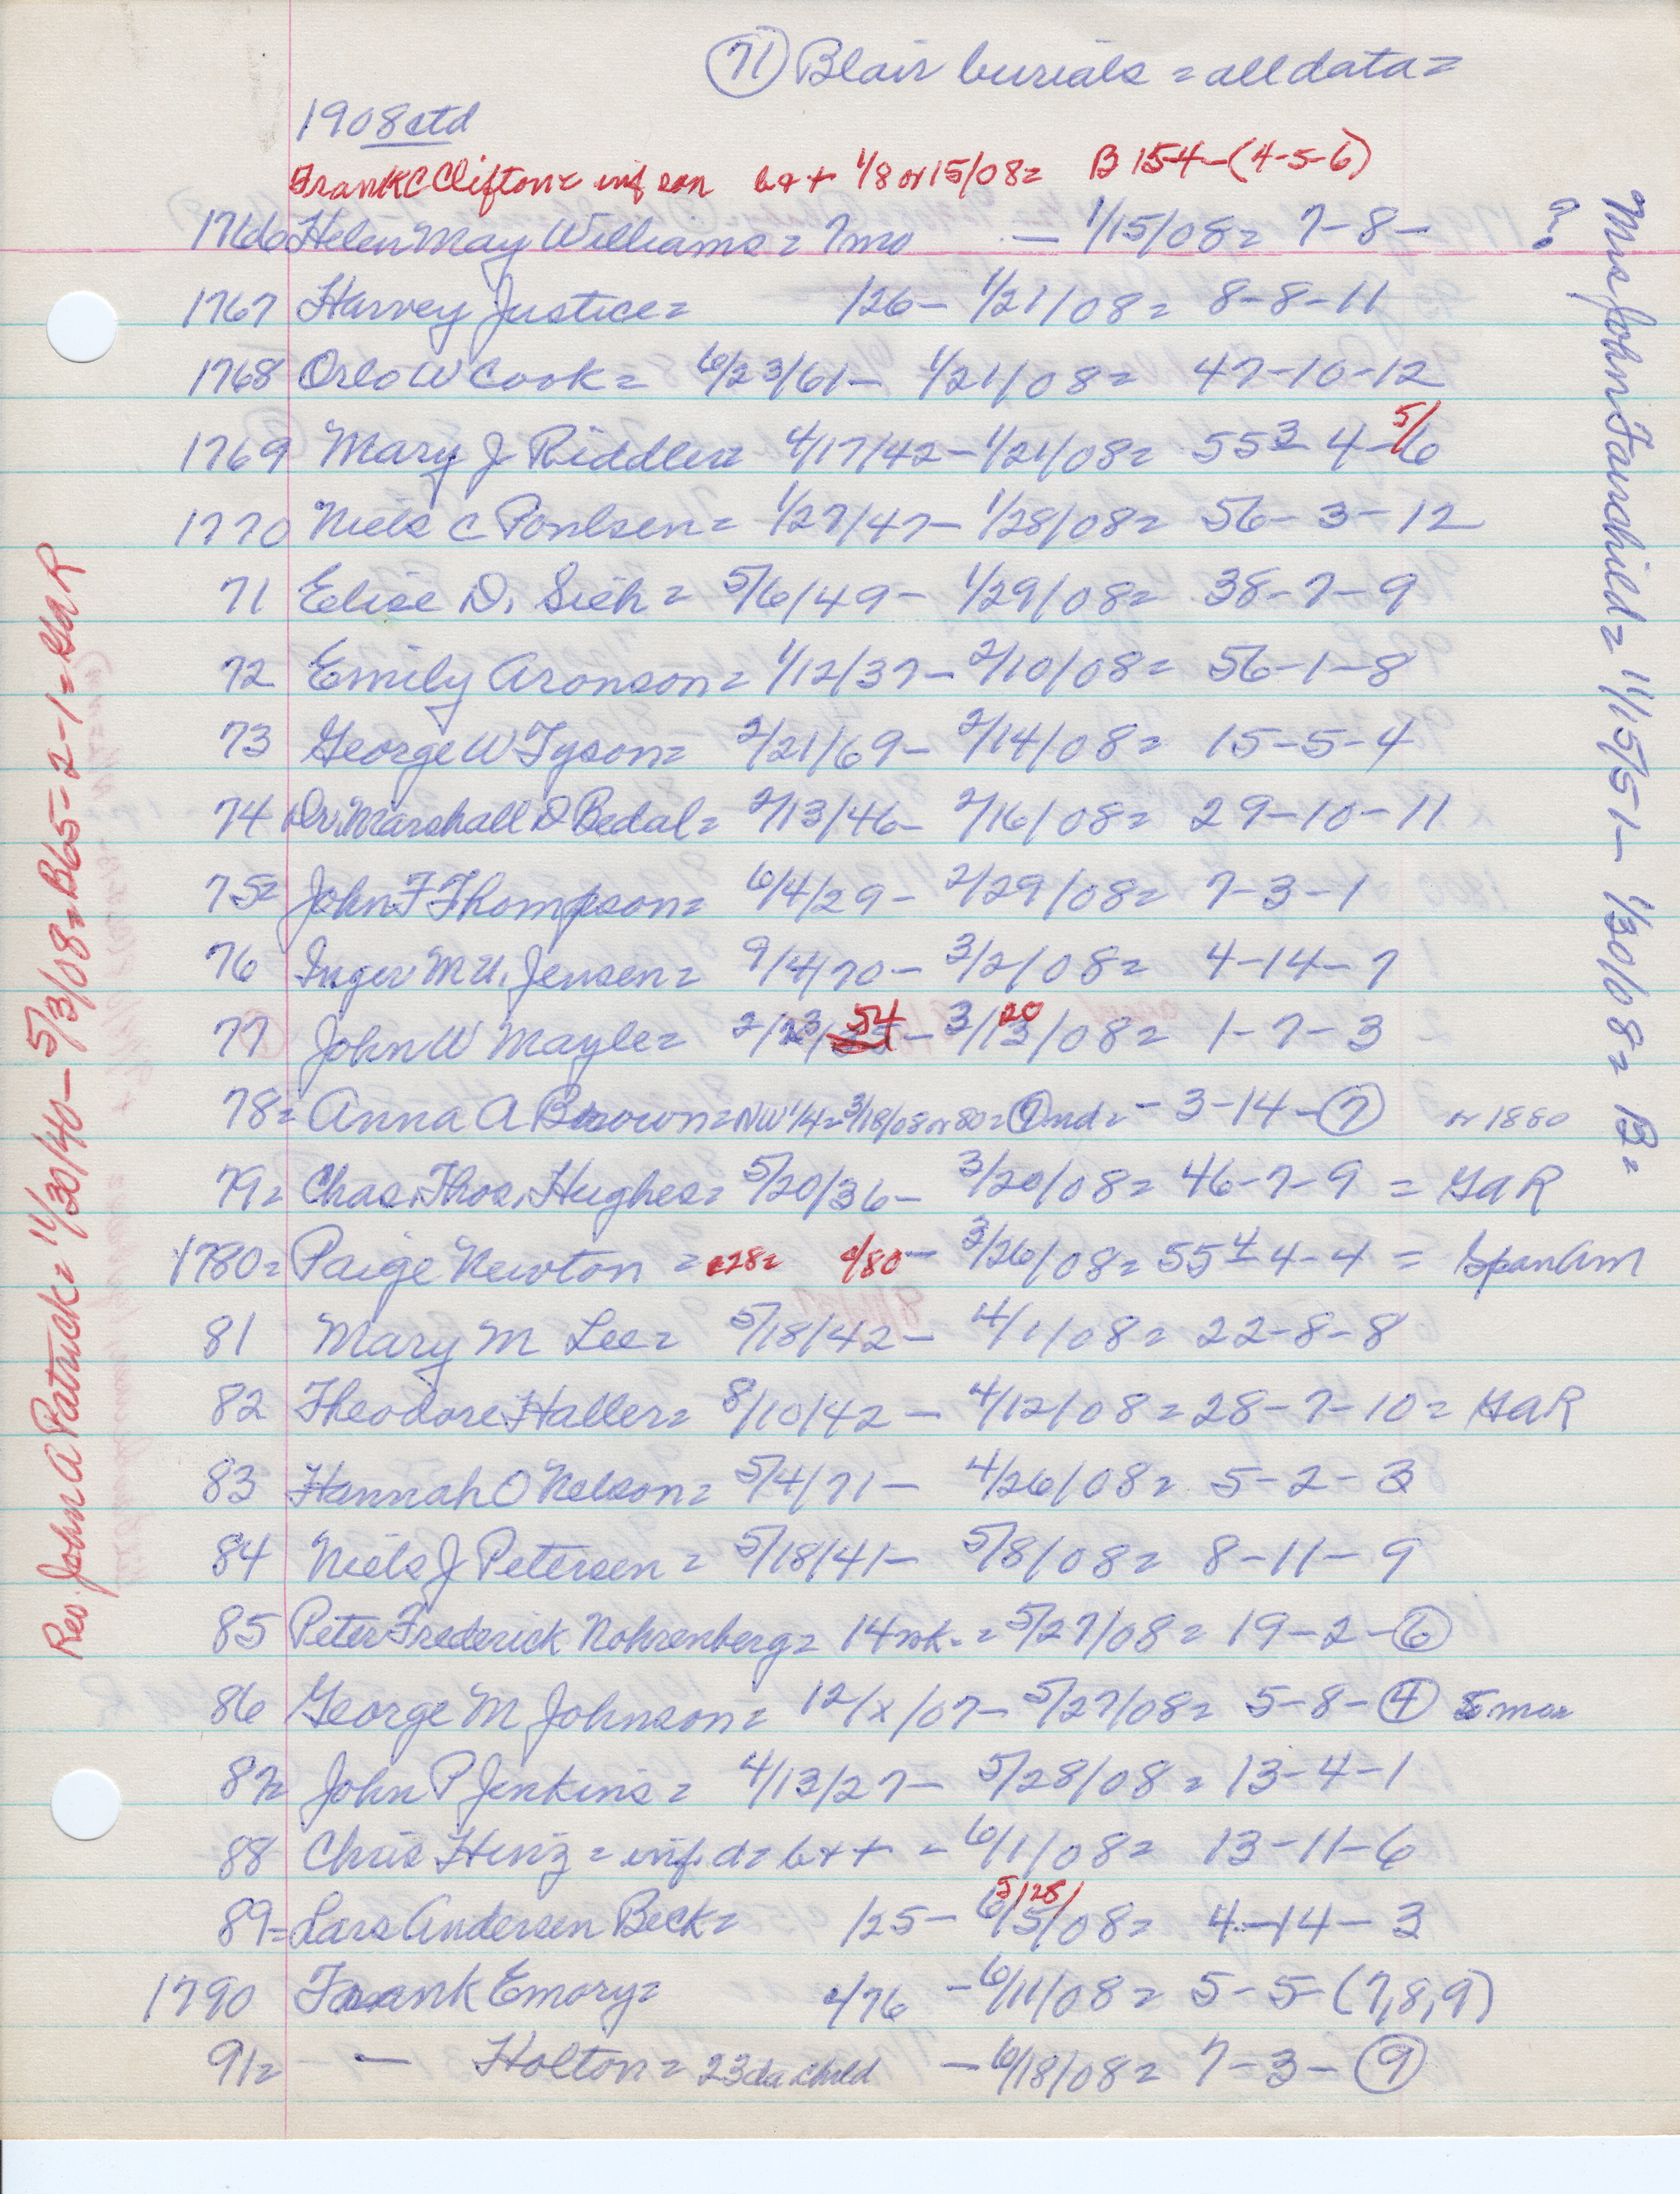 (71) Blair burials = all data =
1908 ctd
Frank C Clifton = inf son b + + 1/8 or 15/08 = B 154-(4-5-6)
1766 Helen May Williams = 7mo — 1/15/08 = 7-8- ?
1767 Harvey Justice = /26 - 1/21/08 = 8-8-11
1768 Orlo W Cook = 6/23/61 - 1/21/08 = 47-10-12
1769 Mary J Riddler = 4/17/42 - 1/21/08 = 55 3 - 4 - 5/6
1770 Niels C Poulsen = 1/27/47 - 1/28/08 = 56-3-12
71 Elise D. Sieh = 5/6/49 - 1/29/08 = 38-7-9
72 Emily Aronson = 1/12/37 - 2/10/08 = 56-1-8
73 George W Tyson = 2/21/69 - 2/14/08 = 15-5-4
74 Dr. Marshall D Bedal = 2/13/46 - 2/16/08 = 29-10-11
75 = John F Thompson = 6/4/29 - 2/29/08 = 7-3-1
76 Inger M U. Jensen = 9/4/70 - 3/2/08 = 4-14-7
77 John W Mayle = 2/23/54 - 3/13/08 = 1-7-3 20
78 = Anna A Brown = NW 1/4 = 3/18/08 or 80 = (7) nd = - 3-14-(7) or 1880
79 = Chas. Thos. Hughes = 5/20/36 - 3/20/08 = 46-7-9 = GaR
1780 = Paige Newton = c28 = c/80 - 3/26/08 = 55 4 - 4-4 = SpanAm
81 Mary M Lee = 5/18/42 - 4/1/08 = 22-8-8
82 Theodore Haller = 8/10/42 - 4/12/08 = 28-7-10 = GaR
83 Hannah O Nelson = 5/4/71 - 4/26/08 = 5-2-3
84 Niels J Petersen = 5/18/41 - 5/8/08 = 8-11-9
85 Peter Frederick Nohrenberg = 14 wk. = 5/27/08 = 19-2-(6)
86 George M Johnson = 12/x/07 - 5/27/08 = 5-8-(4) 5 mos
87 = John P Jenkins = 4/13/27 - 5/28/08 = 13-4-1
88 Chris Hinz = inf. d = b + + - 6/1/08 = 13-11-6
89 = Lars Andersen Beck = /25 - 6/5/08 = 4-14-3 5/28/
1790 Frank Emory = c/76 - 6/11/08 = 5-5-(7,8,9)
91 = — Holton = 23 da child - 6/18/08 = 7-3-(9)
Mrs John Fairchild = 11/15/51 - 1/30/08 = B =
Rev. John A Patrick = 11/30/40 - 5/3/08 = B65-2-1 = GaR